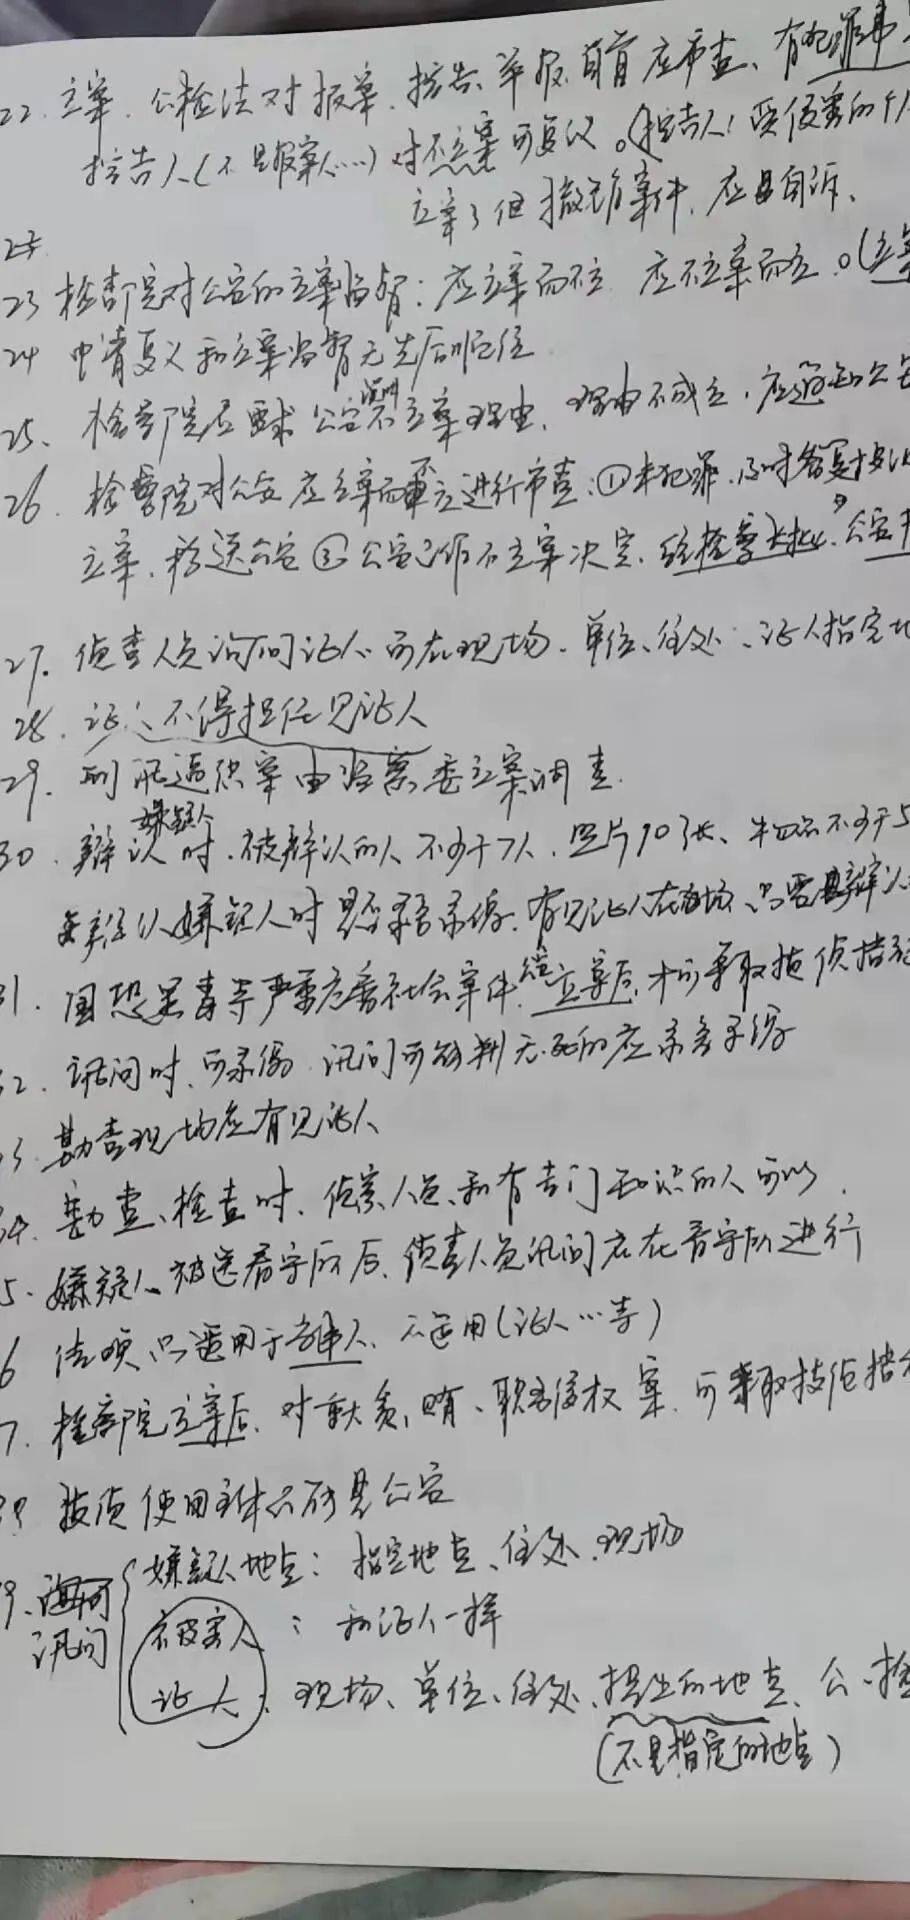 22. 立案. 公检法对报案、控告、举报、自首应审查、有犯罪事
控告人(不是报案人……)对不立案可复议。(控告人:受侵害的个人
立案了但撤销案件，应自诉、
23 检察院对公安的立案监督：应立案而不立 应不立案而立。(立案
24 申请复议和立案监督无先后顺位
25、检察院应要求公安说明不立案理由，理由不成立，应通知公安
26. 检察院对公安应立案而不立进行审查：①未犯罪，及时答复
立案，移送公安 ③公安已作不立案决定，经检察长批，公安
27. 侦查人员询问证人可在现场、单位、住处、证人指定地
28. 证人不得担任见证人
29. 刑讯逼供案由监察委立案调查.
30. 辩认嫌疑人时，被辩认的人不少于7人，照片10张、物品不少于5
辩认嫌疑人时 录像，有见证人在场、只需 辩认
31. 国恐黑毒等严重危害社会案件，经立案后，才可采取技侦措施
32. 讯问时、可录像，讯问可能判无.死的应录音录像
33. 勘查现场应有见证人
34. 勘查、检查时，侦察人员、和有专门知识的人可以.
5. 嫌疑人被送看守所后，侦查人员讯问应在看守所进行
6 传唤只适用于当事人、不适用(证人…等)
7. 检察院立案后，对重大贪、贿、职务侵权案，可采取技侦措
38 技侦使用主体只能是公安
9、询问
讯问
嫌疑人地点：指定地点、住处、现场
被害人：和证人一样
证人：现场、单位、住处、提出的地点、公、检
(不是指定的地点)